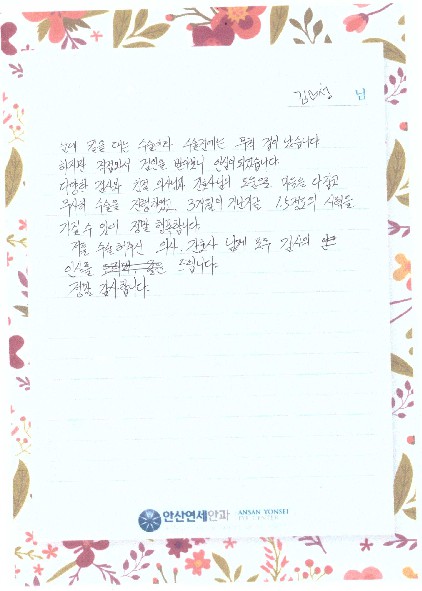 님
수술 수술전에는 무척 겁이 났습니다
하지만 직접와서 검진을 받아보니 안심이 되었습니다
다양한 검사와 의사 간호사님의 도움으로 마음을 다잡고
무사히 수술을 진행하였고 3개월이 지난지금 1.5정도의 시력을
가질 수 있어 정말 행복합니다.
저를 수술해주신 의사, 간호사 님께 모두 감사의
인사를 드립니다.
정말 감사합니다.
안산연세안과 ANSAN YONSEI
EYE CENTER